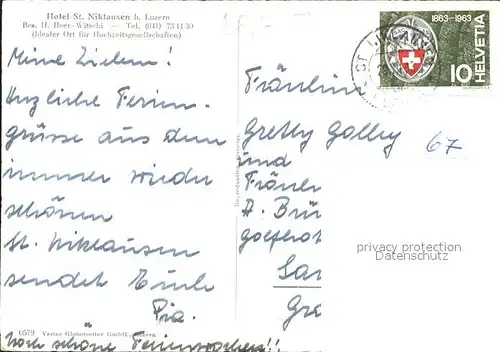 Hotel St. Niklausen b. Luzern
Bes. H. Heer-Witschi — Tel. (041) 73 11 30
(Idealer Ort für Hochzeitsgesellschaften)
Meine Lieben!
Herzliche Ferien-
grüsse aus dem
immer wieder
schönen
St. Niklausen
sendet Euch
Pia.
6579 Verlag Globetrotter GmbH., Luzern
Noch schöne Ferienwochen!!
1863-1963
HELVETIA
10
67
Fräulein
Gretly Golley
und
Fräul
A. Brü
Sar
Gre
privacy protection
Datenschutz